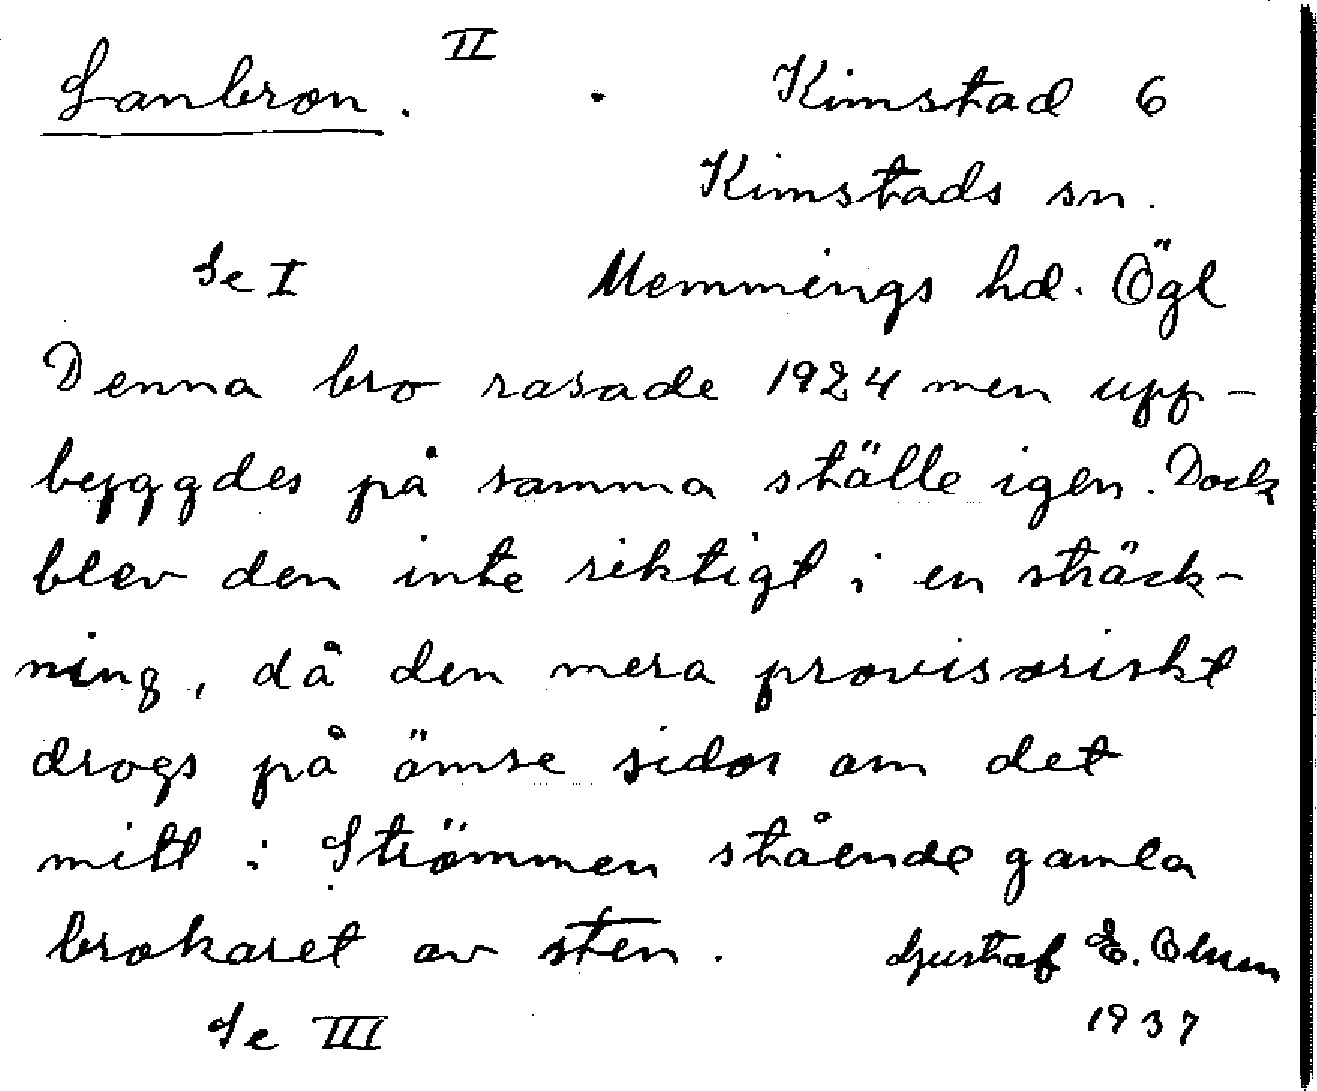 Sanbron. II
Kimstad 6
Kimstads sn.
Se I Memmings hd. Ögl
Denna bro rasade 1924 men upp-
byggdes på samma ställe igen. Dock
blev den inte riktigt i en sträck-
ning, då den mera provisoriskt
drogs på ömse sidor om det
mitt i Strömmen stående gamla
brokaret av sten. Gustaf E.
Se III 1937